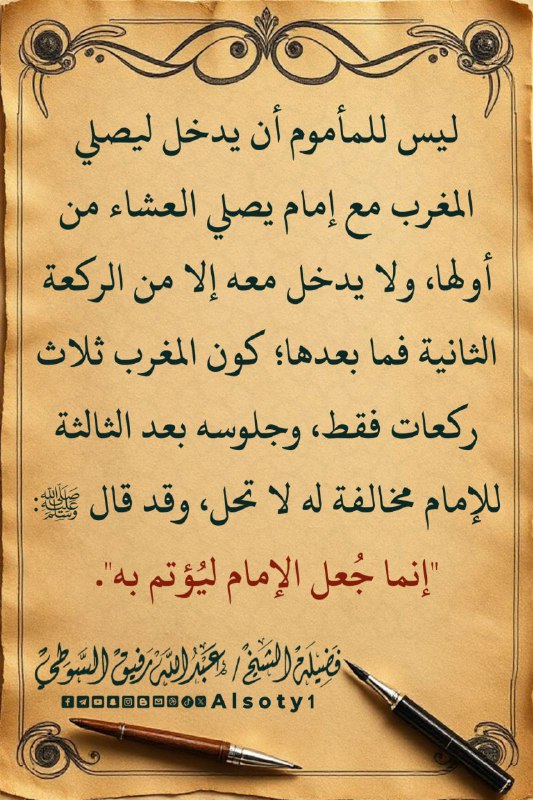 ليس للمأموم أن يدخل ليصلي
المغرب مع إمام يصلي العشاء من
أولها، ولا يدخل معه إلا من الركعة
الثانية فما بعدها؛ كون المغرب ثلاث
ركعات فقط، وجلوسه بعد الثالثة
للإمام مخالفة له لا تحل، وقد قال ﷺ:
"إنما جُعل الإمام ليُؤتم به".
فضيلة الشيخ / عبدالله رفيق السوطي
Alsoty1